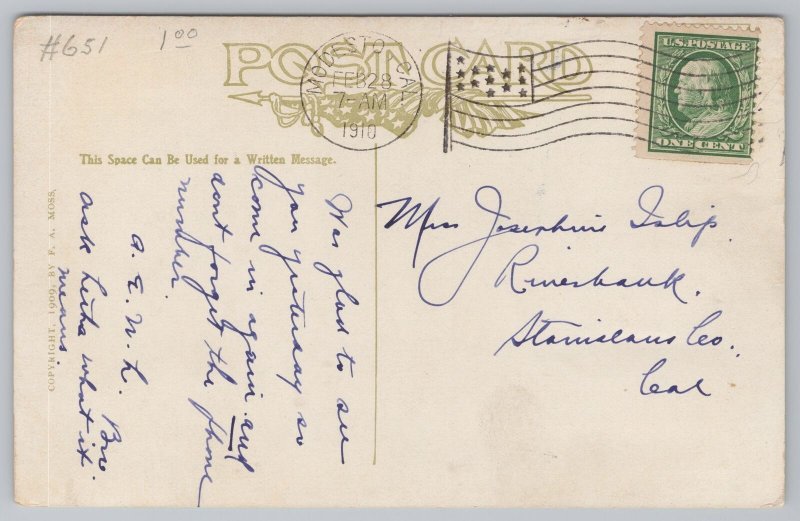 #651
1 00
POST CARD
MODESTO, CAL.
FEB 28
7-AM
1910
U.S. POSTAGE
ONE CENT
This Space Can Be Used for a Written Message.
Was glad to see
you yesterday so
come in again and
dont forget the phone
number.
A. E. N. L. Bro
ask Letha what it
means.
Miss Josephine Islip.
Riverbank.
Stanislaus Co.
Cal
COPYRIGHT, 1909, BY P. A. MOSS.